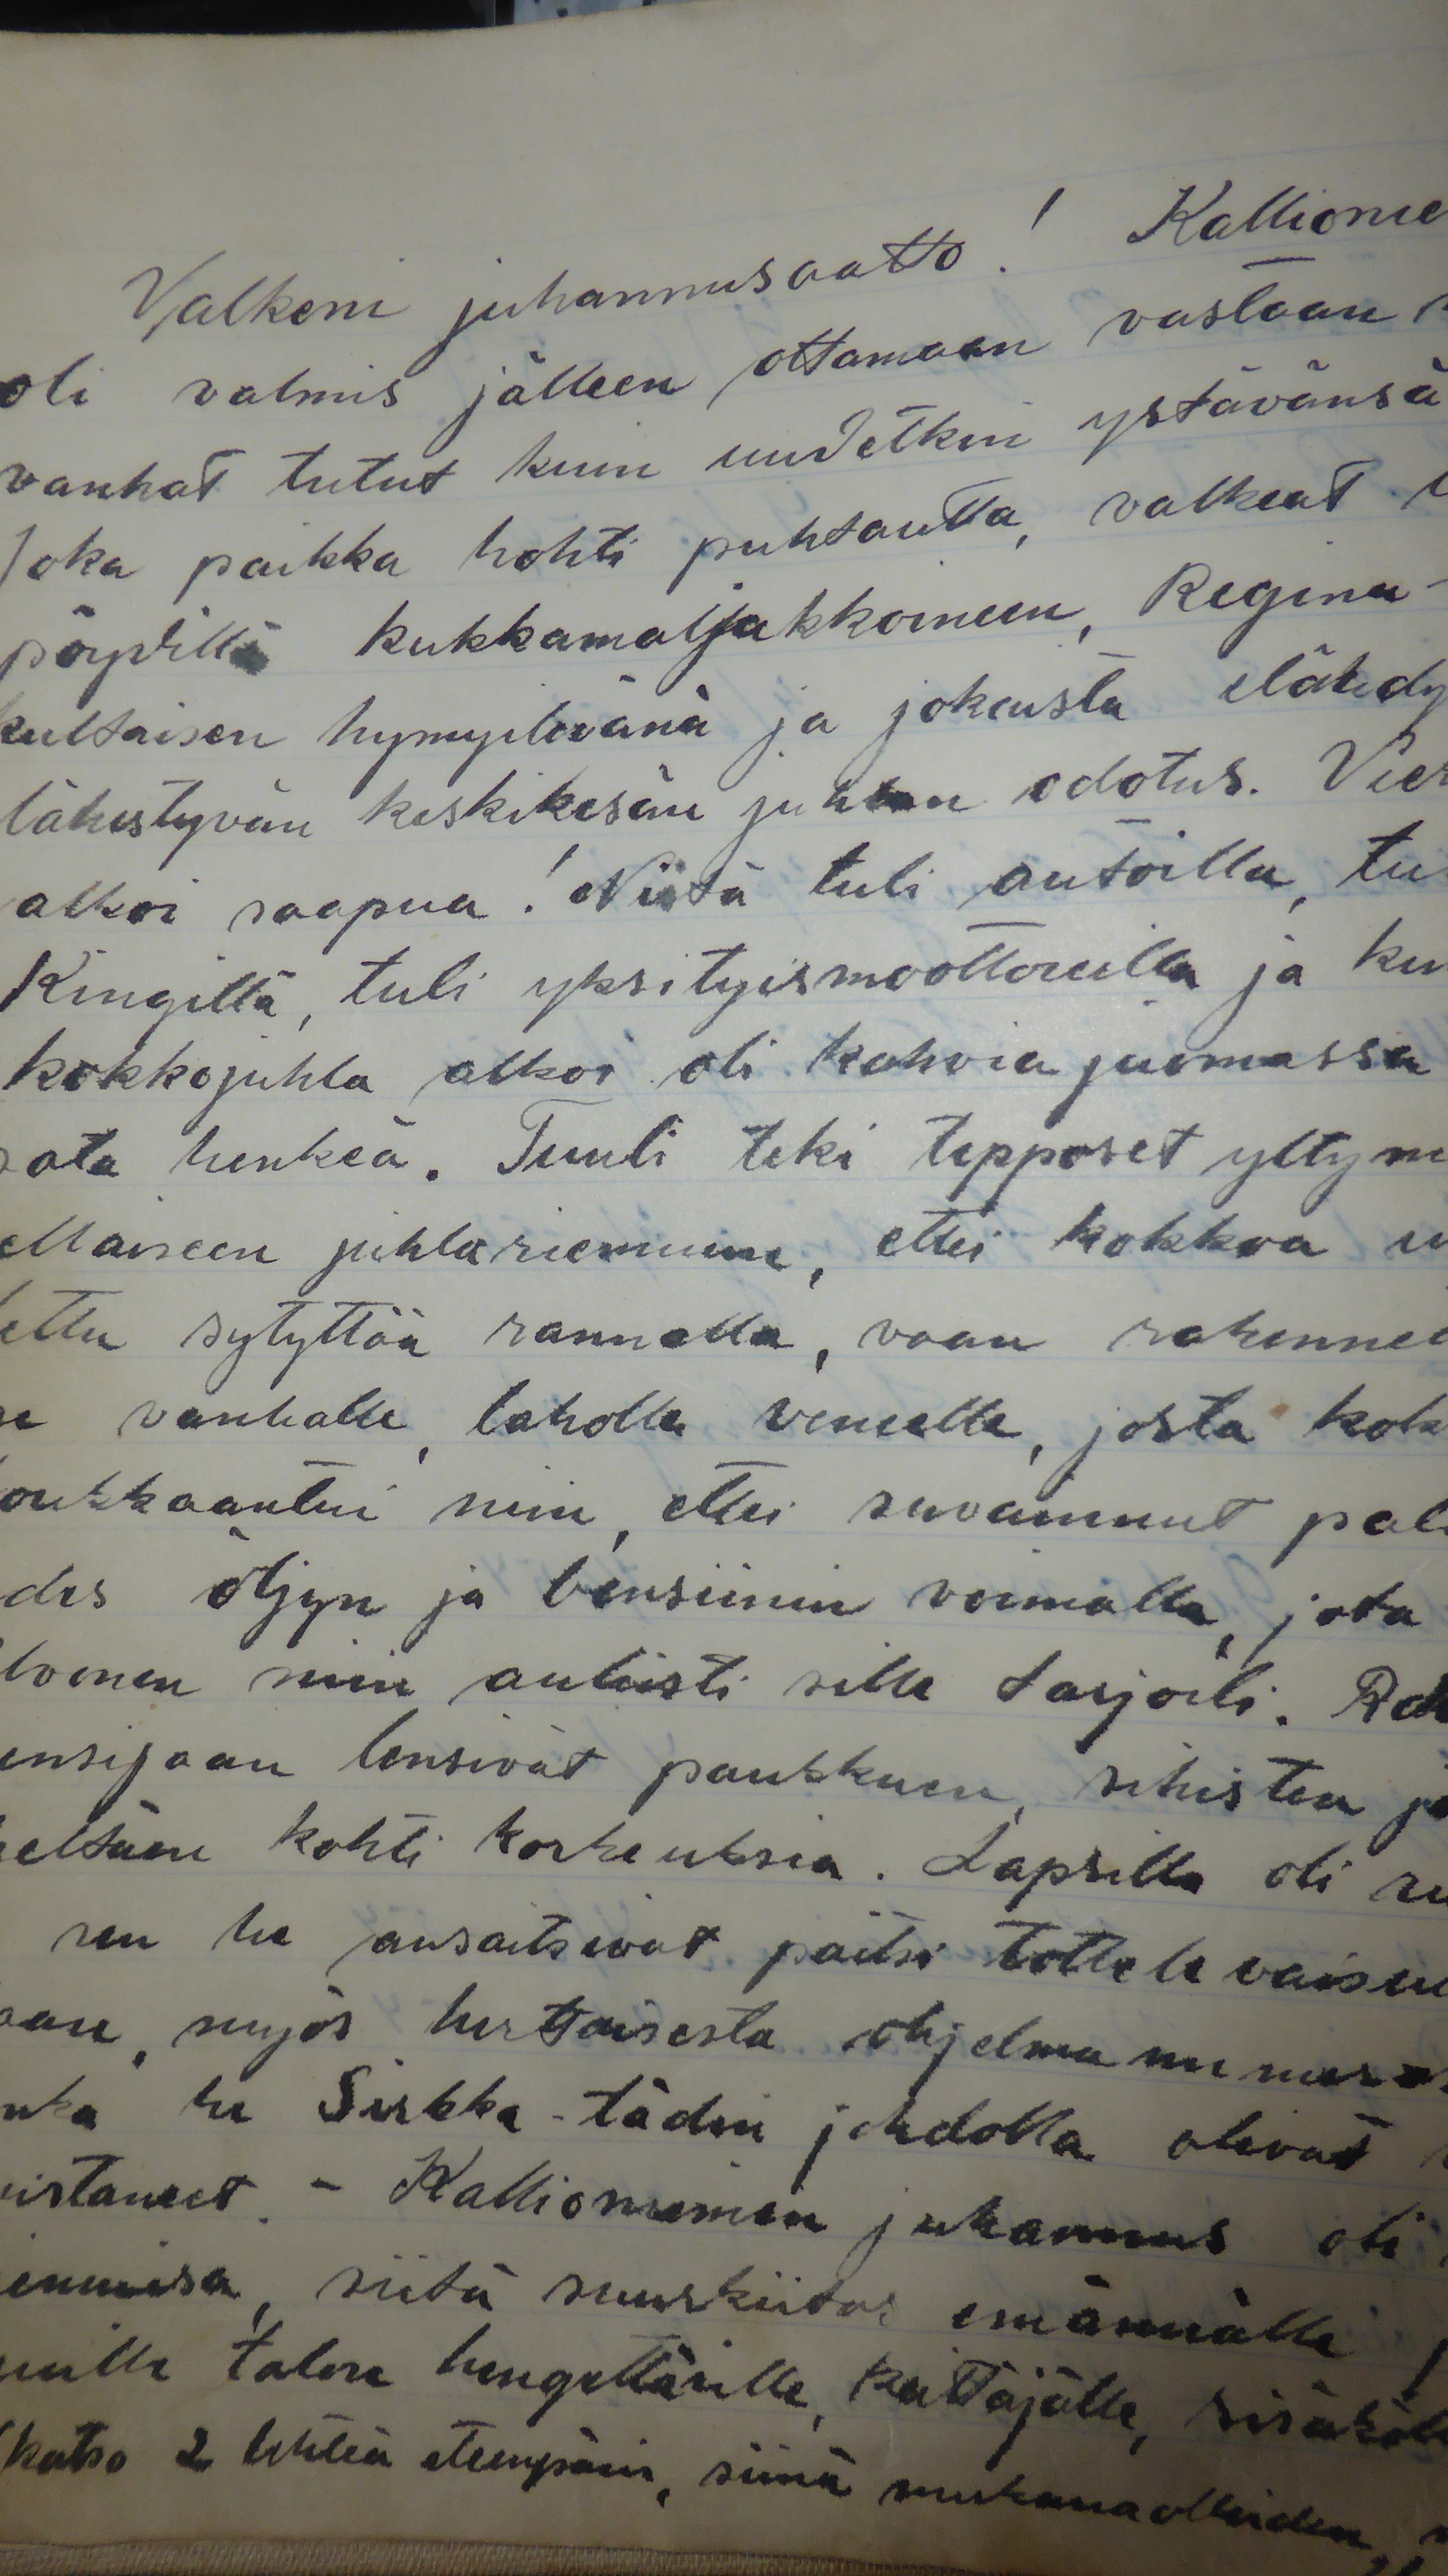 Valkeni juhannusaatto! Kallionie
oli valmis jälleen ottamaan vastaan
vanhat tutut kuin uudetkin ystävänsä
Joka paikka hohti puhtautta, valkeat
pöydillä kukkamaljakkoineen, Regina-
kultaisen hymyilevänä ja jokaista elähdy
lähestyvän keskikesän juhlan odotus. Vier
alkoi saapua! Niitä tuli autoilla, tu
Kingillä, tuli yksityismoottoreilla ja ku
kokkojuhla alkoi oli kahvia juomassa
sata henkeä. Tuuli teki tepposet yltyme
ellaiseen juhlariemuun, ettei kokkoa u
lettu sytyttää rannalla, vaan rakennet
vanhalle, laholle veneelle, josta kok
loukkaantui niin, ettei suvainnut pala
des öljyn ja bensiinin voimalla, jota
loonen niin auliisti sille tarjoili. Rak
ensijaan lensivät paukkuen, sihisten ja
heltäen kohti korkeuksia. Lapsilla oli su
sen he ansaitsivat paitsi tottelevaisuu
aan, myös herttaisesta ohjelmanumero
nka he Sirkka-tädin johdolla olivat
istaneet. - Kallioniemen juhannus oli
iemuisa, siitä suurkiitos emännälle!
uille talon hengettärille, keittäjälle, sisäkölle
(katso 2 lehteä eteenpäin, siinä mukanaolleiden,